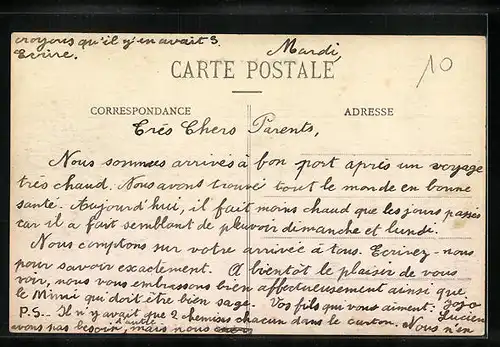 croyons qu'il y'en avait 3.
Ecrire.
Mardi,
10
CARTE POSTALE
CORRESPONDANCE
ADRESSE
Très Chers Parents,
Nous sommes arrivés à bon port après un voyage
très chaud. Nous avons trouvé tout le monde en bonne
santé. Aujourd'hui, il fait moins chaud que les jours passés
car il a fait semblant de pleuvoir dimanche et lundi.
Nous comptons sur votre arrivée à tous. Ecrivez-nous
pour savoir exactement. A bientôt le plaisir de vous
voir, nous vous embrassons bien affectueusement ainsi que
le Mimi qui doit être bien sage. Vos fils qui vous aiment: Jojo
Lucien
P.S.- Il n'y avait que 2 chemises chacun dans le carton. Nous n'en
avons pas besoin, mais nous